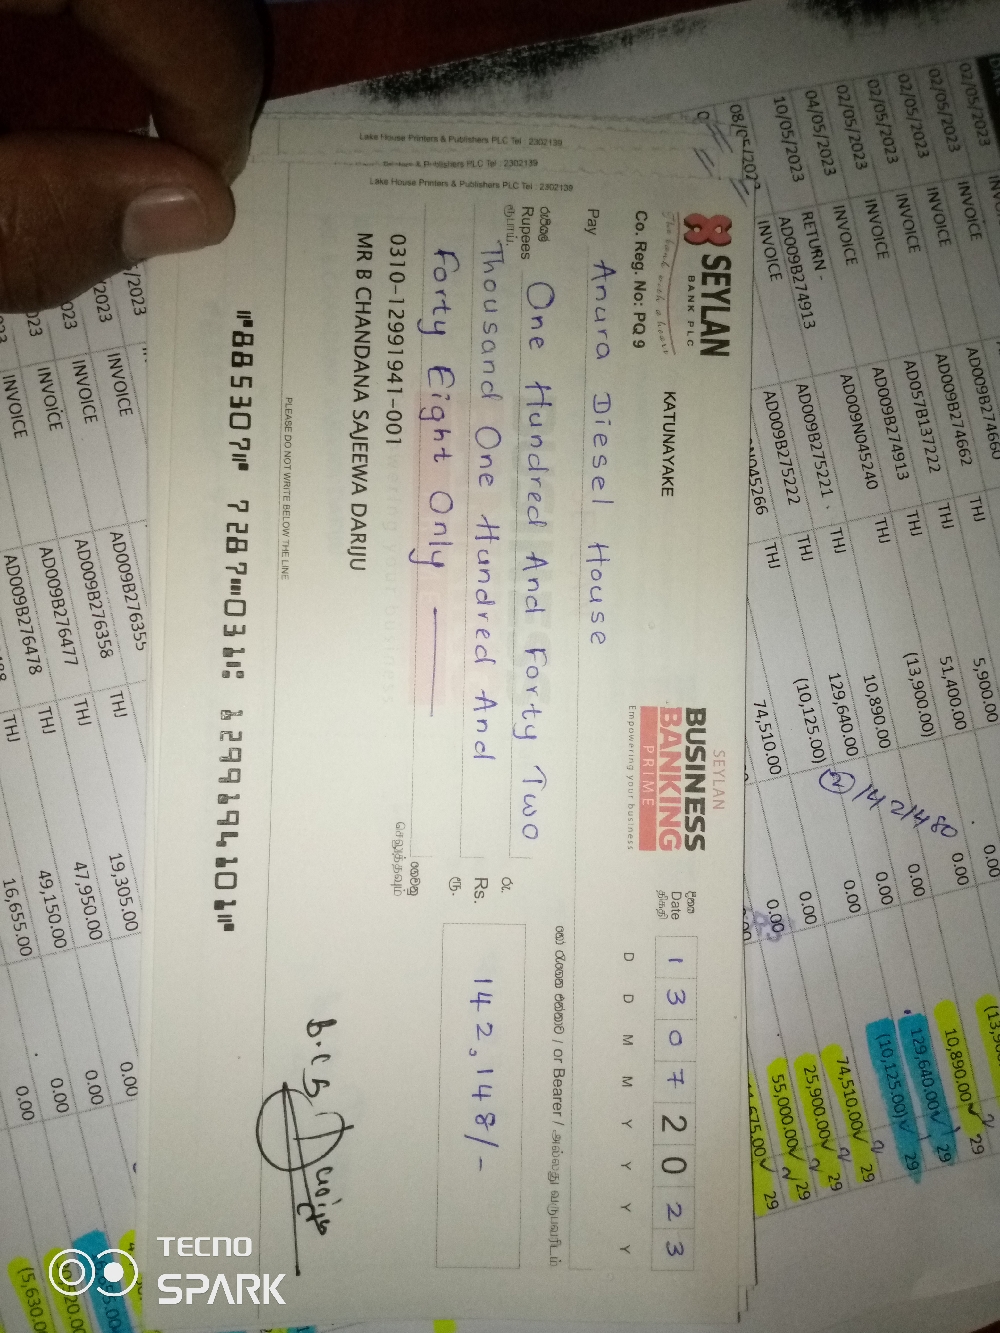 Lake House Printers & Publishers PLC Tel : 2302139
Lake House Printers & Publishers PLC Tel : 2302139
SEYLAN
BANK PLC
The bank with a heart
Co. Reg. No: PQ 9
KATUNAYAKE
SEYLAN
BUSINESS
BANKING
PRIME
Empowering your business
දිනය
Date
திகதி
1 3 0 7 2 0 2 3
D D M M Y Y Y Y
Pay Anura Diesel House
or Bearer /
රුපියල්
Rupees One Hundred And Forty Two
ரூபாய்
Thousand One Hundred And
Forty Eight Only
රු.
Rs. 142,148/-
ரூ.
0310-12991941-001
MR B CHANDANA SAJEEWA DARIJU
PLEASE DO NOT WRITE BELOW THE LINE
885307 7287 031 12991941 01
02/05/2023 INVOICE AD009B274660 THJ 5,900.00 0.00
02/05/2023 INVOICE AD009B274662 THJ 51,400.00 0.00 10,890.00 29
02/05/2023 INVOICE AD057B137222 THJ (13,900.00) 0.00 129,640.00 29
02/05/2023 INVOICE AD009B274913 THJ 10,890.00 0.00 (10,125.00) 29
02/05/2023 INVOICE AD009N045240 THJ 129,640.00 0.00 74,510.00 29
04/05/2023 RETURN - AD009B274913 AD009B275221 THJ (10,125.00) 0.00 25,900.00 29
10/05/2023 INVOICE AD009B275222 THJ 74,510.00 0.00 55,000.00 29
N045266
1421480
INVOICE AD009B276355 THJ 19,305.00 0.00
INVOICE AD009B276358 THJ 47,950.00 0.00
INVOICE AD009B276477 THJ 49,150.00 0.00
INVOICE AD009B276478 THJ 16,655.00 0.00
TECNO
SPARK